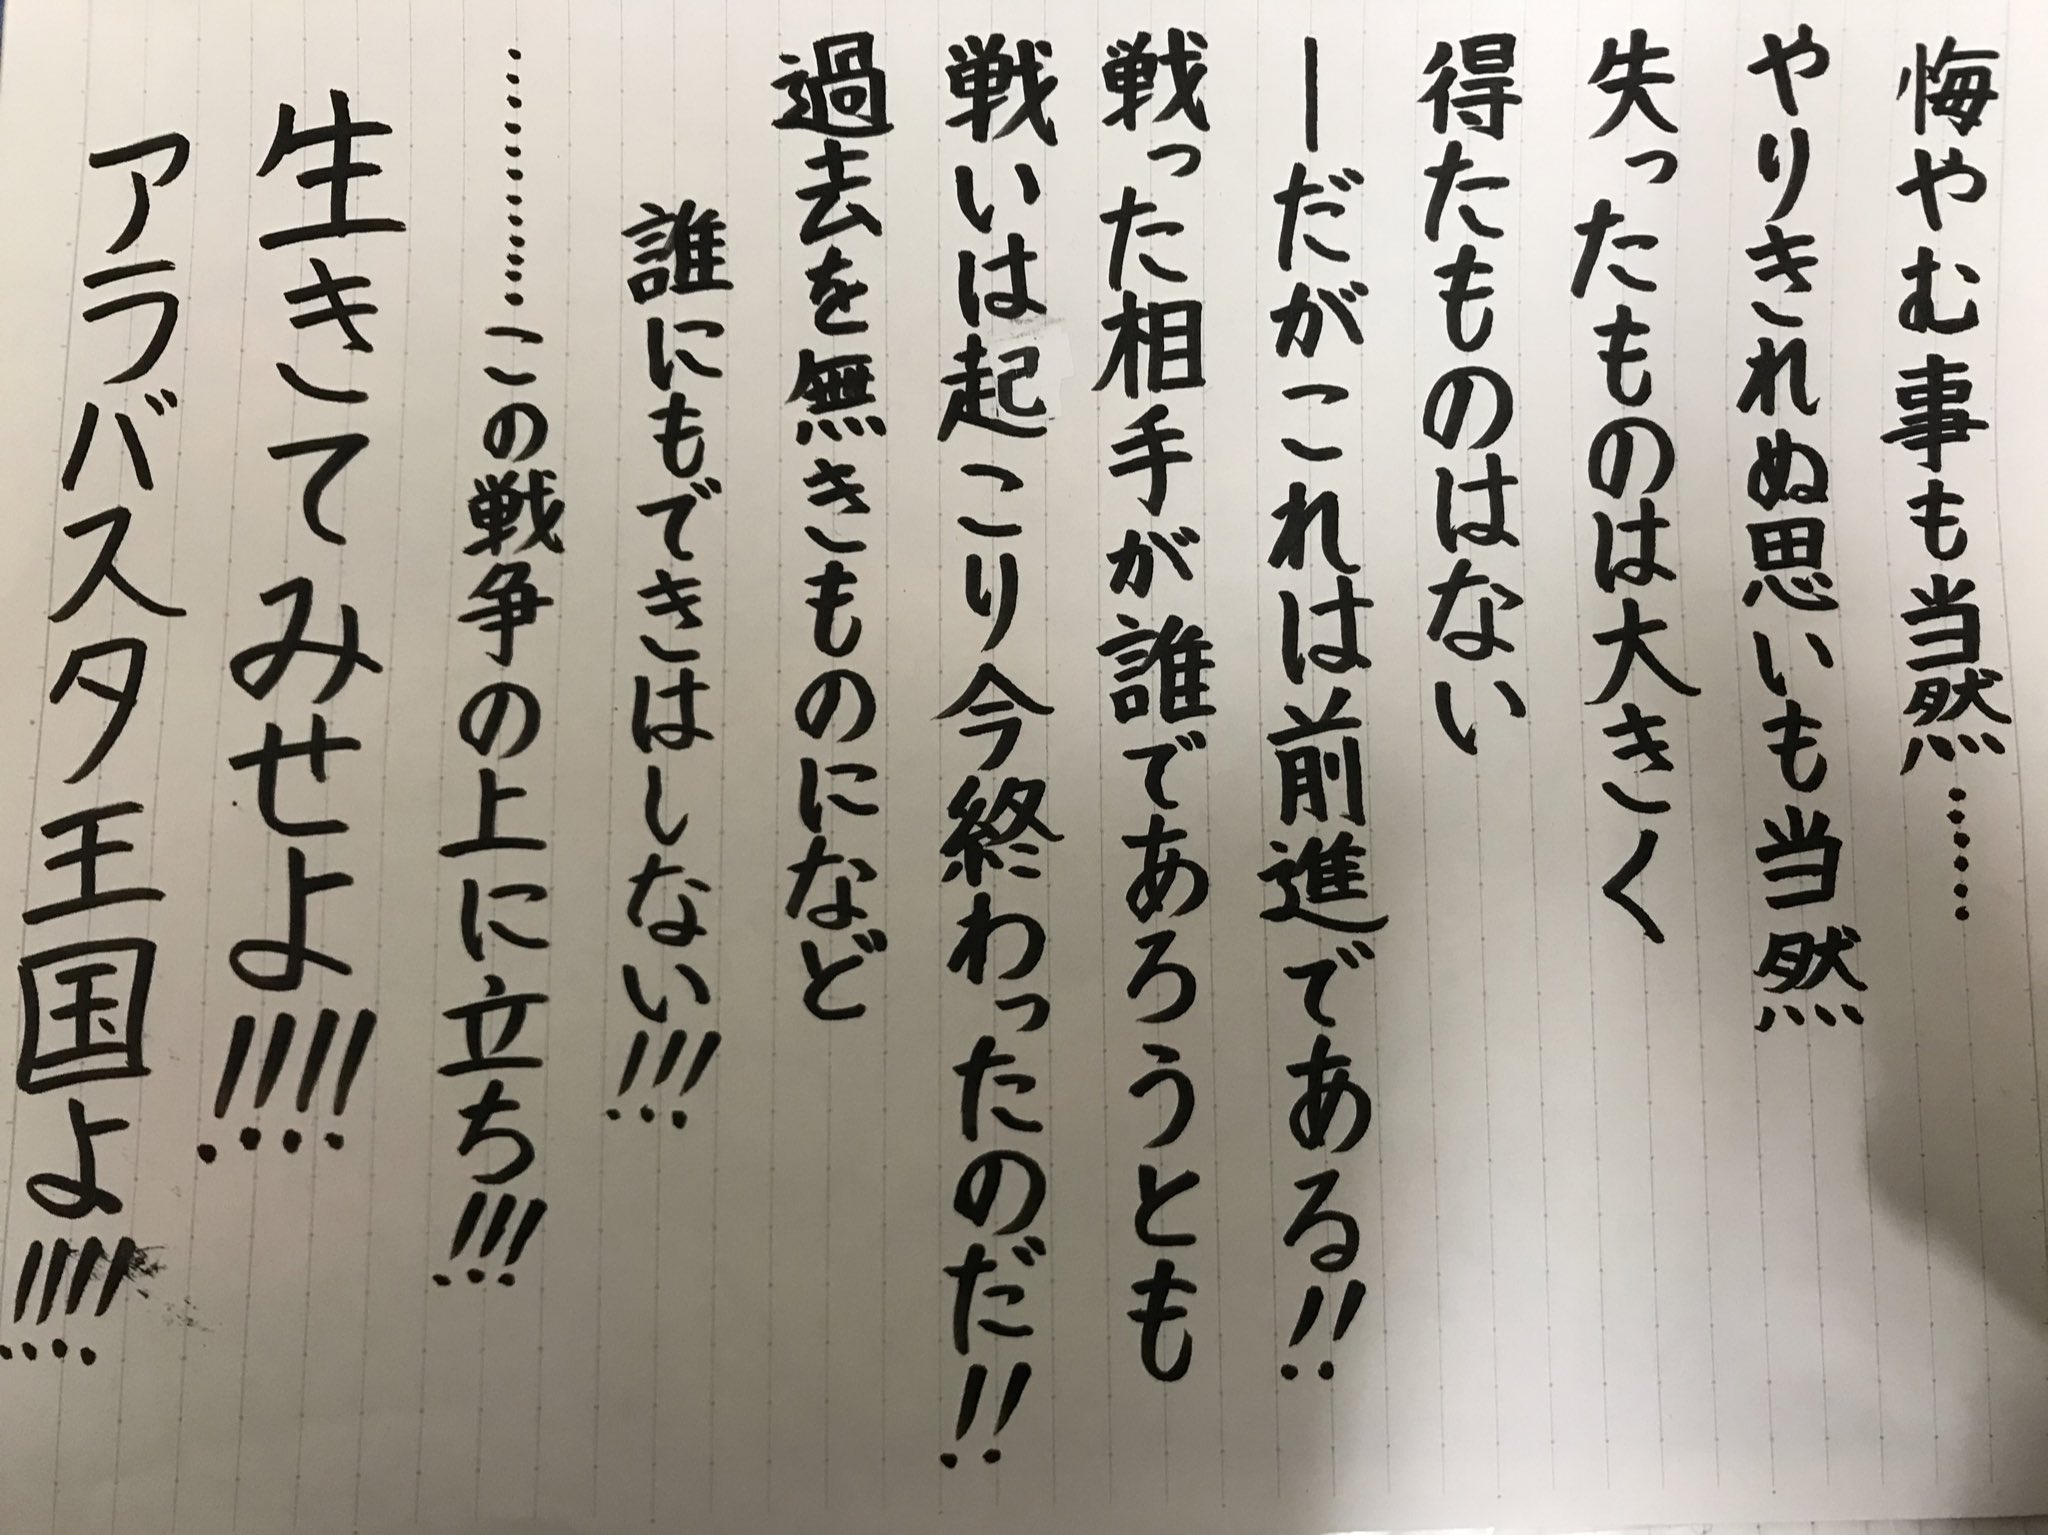 悔やむ事も当然……
やりきれぬ思いも当然
失ったものは大きく
得たものはない
―だがこれは前進である!!
戦った相手が誰であろうとも
戦いは起こり今終わったのだ!!
過去を無きものになど
誰にもできはしない!!!
…………この戦争の上に立ち!!!
生きてみせよ!!!!
アラバスタ王国よ!!!!